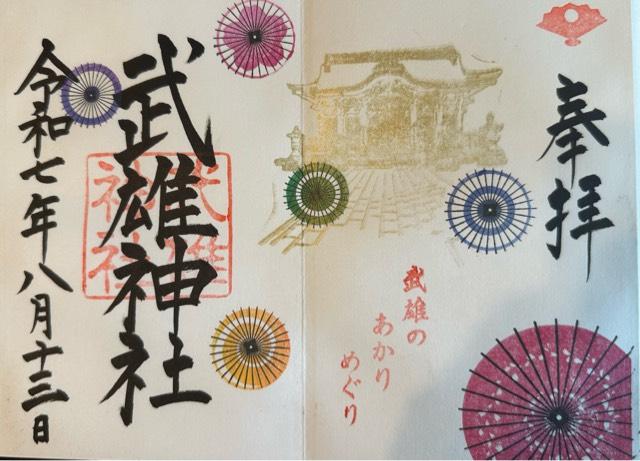 奉拝
武雄の
あかり
めぐり
武雄神社
武雄
神社
令和七年八月十三日